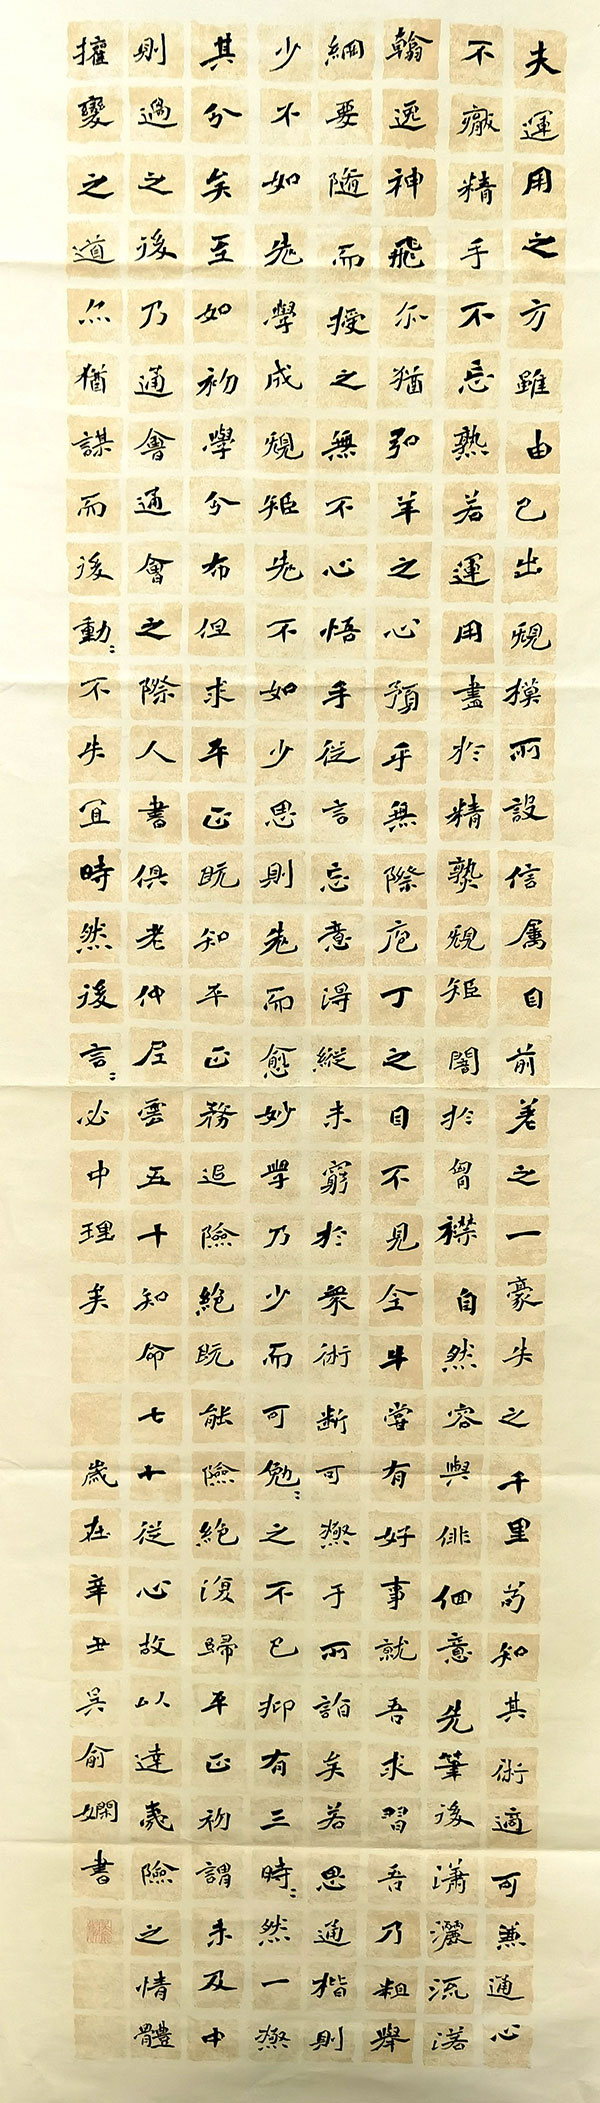 夫運用之方雖由己出規模所設信屬目前差之一豪失之千里苟知其術適可兼通心
不厭精手不忘熟若運用盡於精熟規矩闇於胷襟自然容與俳佪意先筆後瀟灑流落
翰逸神飛亦猶弘羊之心預乎無際庖丁之目不見全牛嘗有好事就吾求習吾乃粗舉
綱要隨而授之無不心悟手從言忘意得縱未窮於衆術斷可極于所詣矣若思通楷則
少不如老學成規矩老不如少思則老而愈妙學乃少而可勉〻之不已抑有三時〻然一極
其分矣至如初學分布但求平正既知平正務追險絕既能險絕復歸平正初謂未及中
則過之後乃通會通會之際人書俱老仲尼云五十知命七十從心故以達夷險之情體
權變之道亦猶謀而後動〻不失宜時然後言〻必中理矣
歲在辛丑吳俞嫻書